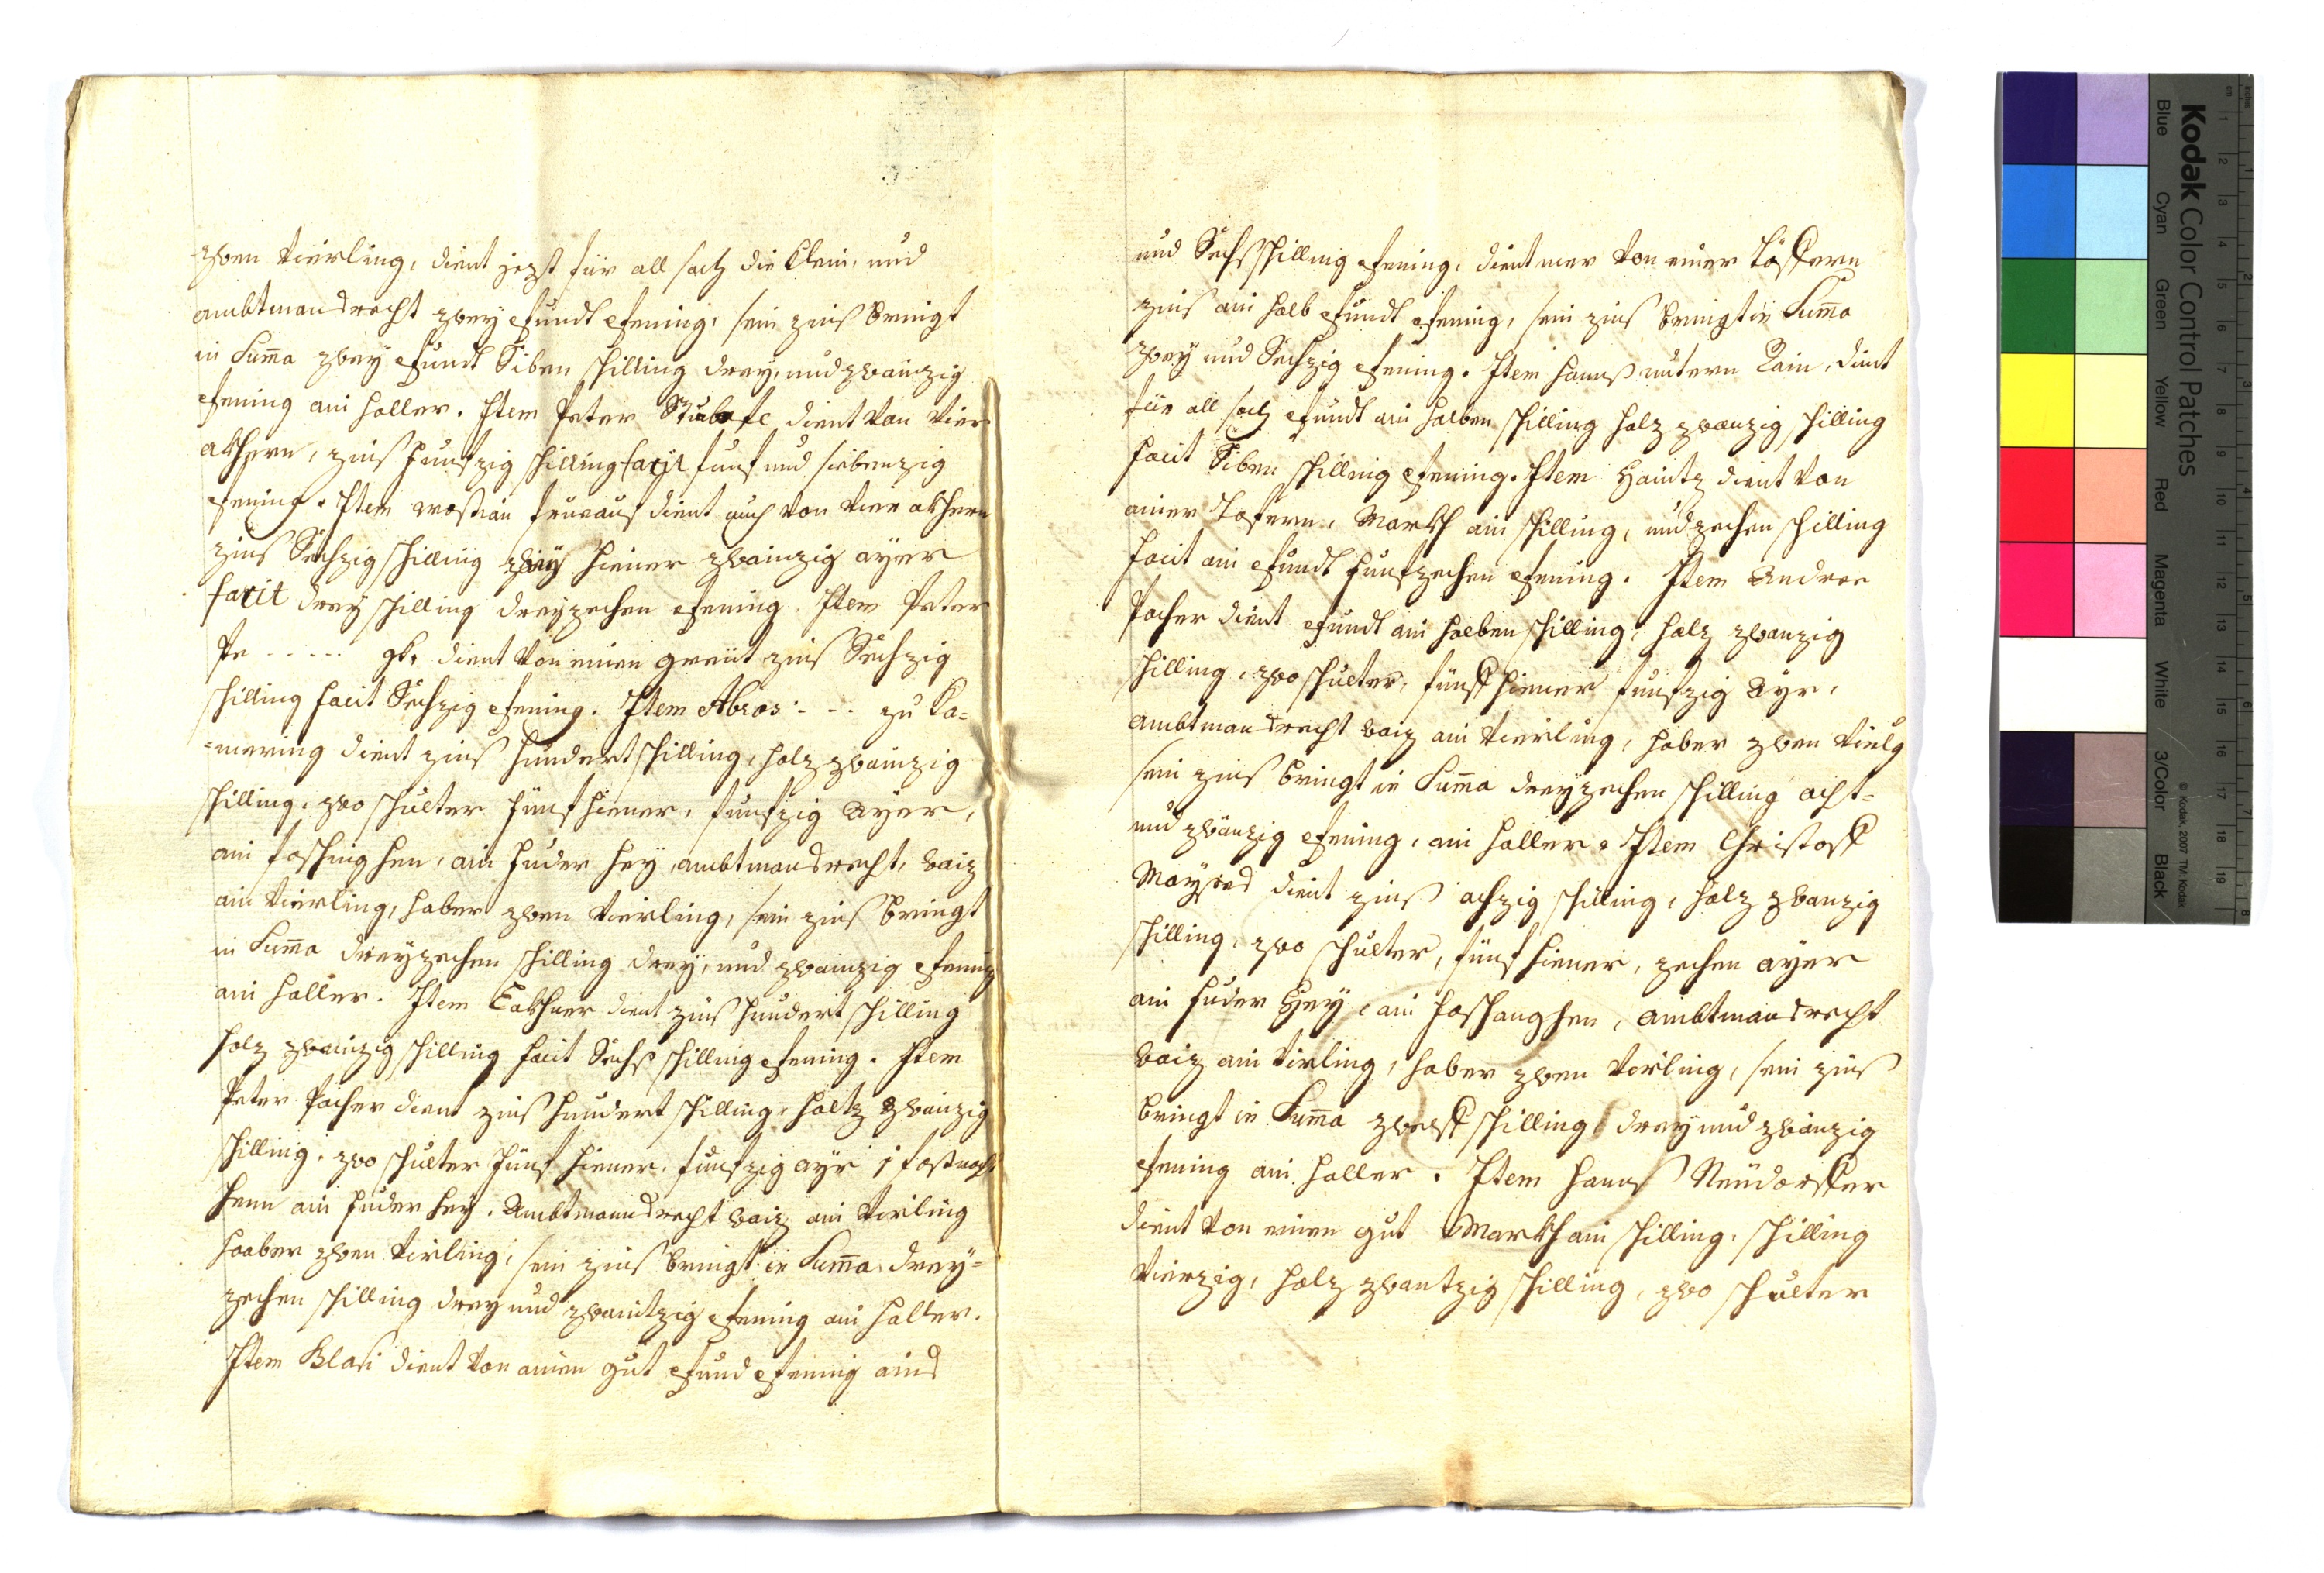 zwen Vierling, dient jezst für all sach die Clein, und
ambtmandrecht zwey Pfundt Pfening, sein zinß bringt
in Sum̄a zwey Pfundt Siben schilling drey, und zwainzig
Pfening ain haller. Item Peter dient Von Vier
akhern, zinß funfzig schilling facit funf und sibenzig
Pfening. Item dient auch von Vier akhern
zinß Sechzig schilling zwey hiener zwainzig ayer
facit drey schilling dreyzechen Pfening. Item Peter
Pe - - - - - gk, dient Von einen greüt zinß Sechzig
schilling facit Sechzig Pfening. Item Abros - - - zu Ka=
=mering dient zinß hundert schilling, holz zwainzig
schilling, zwo schulter fünf hiener, funfzig Ayer,
ain foschinghen, ain fuder hey, ambtmandrecht, waiz
ain Vierling, haber zwen Vierling, sein zinß bringt
in Sum̄a dreyzechen schilling drey, und zwainzig Pfening
ain haller. Item dient zinß hundert schilling
holz zwainzig schilling facit Sechs schilling Pfening. Item
Peter Pacher dient zinß hundert schilling, holtz zwainzig
schilling, zwo schulter fünf hiener, funfzig ayr 1 foßnacht
henn ain fuder hey. Ambtmanndrecht waiz ain Virling
haaber zwen Virling, sein zinß bringt in Sum̄a drey=
zechen schilling drey und zwaintzig Pfening ain haller.
Item Blasi dient Von ainen gut Pfund Pfening ains
und Sechs schilling Pfening, dient mer Von einer
zinß ain halb Pfundt Pfening, sein zinß bringt in Sum̄a
zwey und Sechzig Pfening. Item hannß untern Rain, dient
für all sach Pfundt ain halben schilling holz zwanzig schilling
facit Siben schilling Pfening. Item Haintz dient Von
ainer Tafern, Markh ain schilling, und zechen schilling
facit ain Pfundt funfzechen Pfening. Item Andree
Pacher dient Pfundt ain halben schilling, holz zwanzig
schilling, zwo schulter, fünff hiener funfzig Ayr,
ambtmandrecht waiz ain Vierling, haber zwen Vierlg
sein zinß bringt in Sum̄a dreyzechen schilling acht=
und zwänzig Pfening, ain haller. Item Christoff
dient zinß achzig schilling, holz zwanzig
schilling, zwo schulter, fünf hiener, zechen ayer
ain fuder Hey, ain foschanghen, Ambtmandrecht
waiz ain Virling, haber zwen Verling, sein zinß
bringt in Sum̄a zwelff schilling drey und zwänzig
Pfening ain haller. Item hanns Neudorffer
dient Von einen gut Markh ain schilling, schilling
Vierzig, holz zwantzig schilling, zwo schulter
Kodak Color Control Patches
Blue Cyan Green Yellow Red Magenta White 3/Color Black
© Kodak, 2007 TM: Kodak
inches 1 2 3 4 5 6 7 8
cm 1 2 3 4 5 6 7 8 9 10 11 12 13 14 15 16 17 18 19